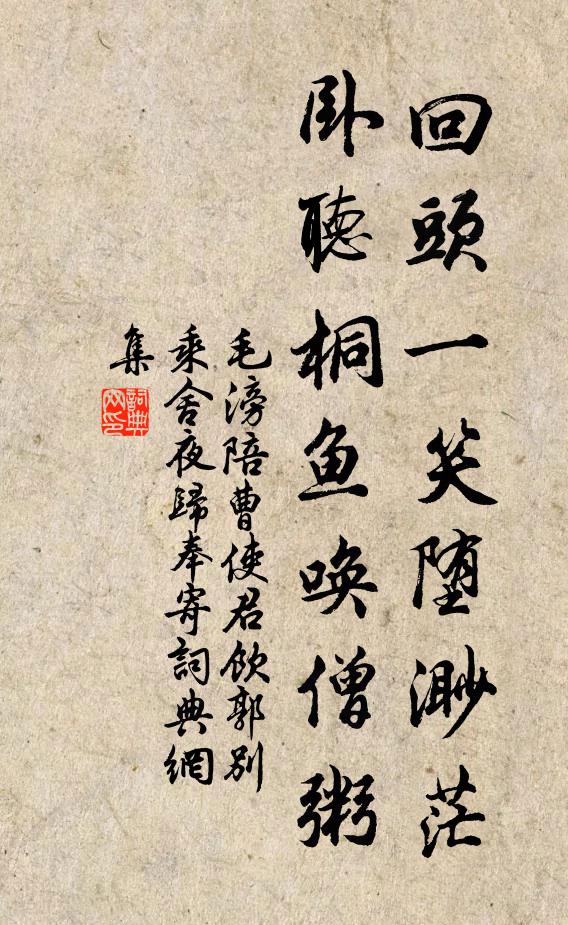 回頭一笑堕渺茫
卧聴桐鱼喚僧粥
毛滂陪曹使君飲郭别
乘舍夜歸奉寄詞典網
集
詞典
网印